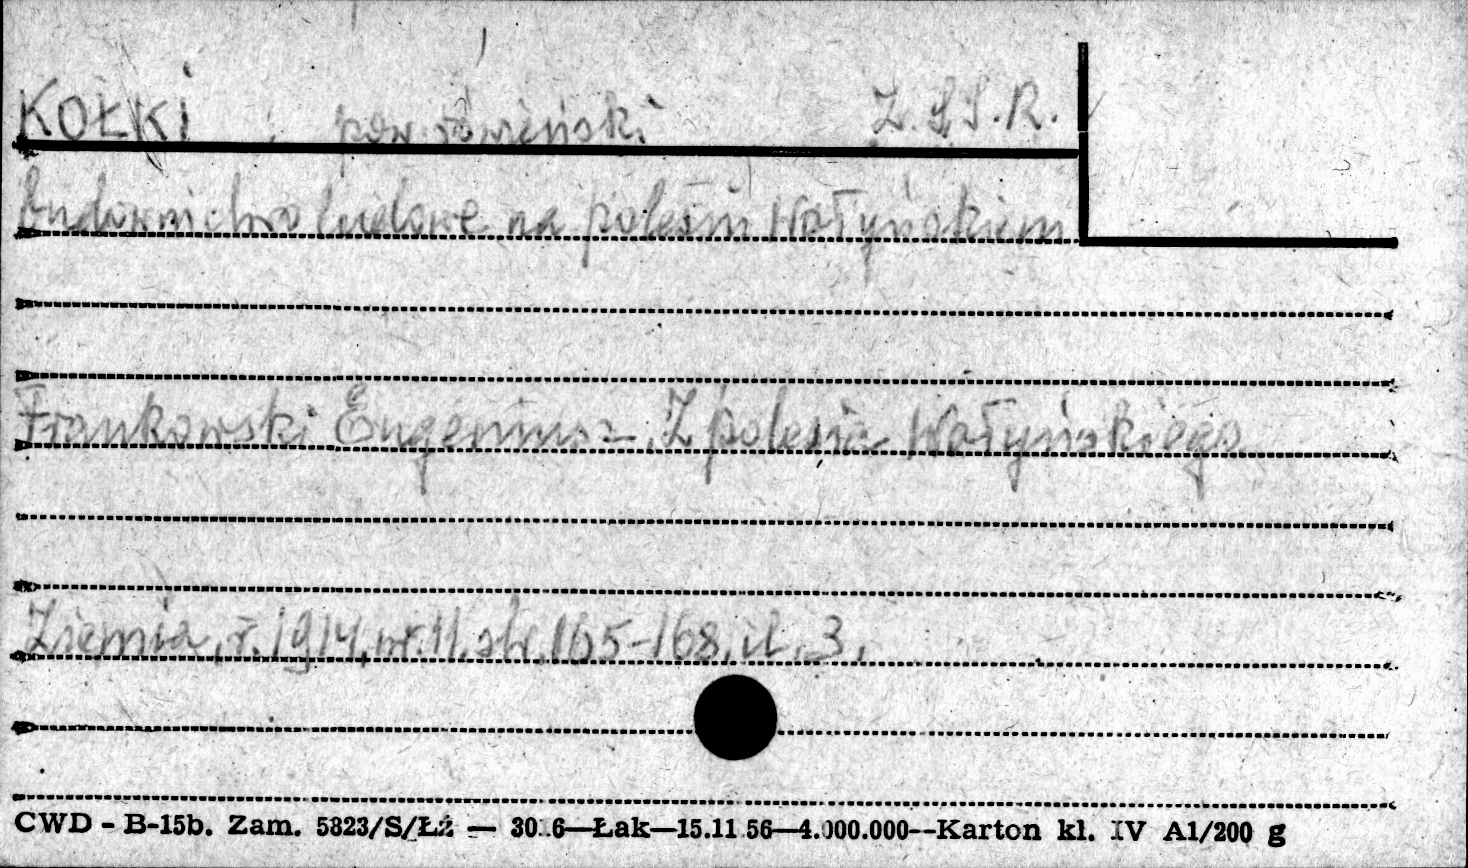 KOŁKI pow. rówieński Z.S.S.R.
Budownictwo ludowe na polesiu Wołyńskiem
Frankowski Eugeniusz – Z polesia Wołyńskiego
Ziemia, r. 1914, nr. 11. str. 165-168, il. 3.
CWD - B-15b. Zam. 5823/S/Łź — 30.6—Łak—15.11.56—4.000.000—Karton kl. IV A1/200 g